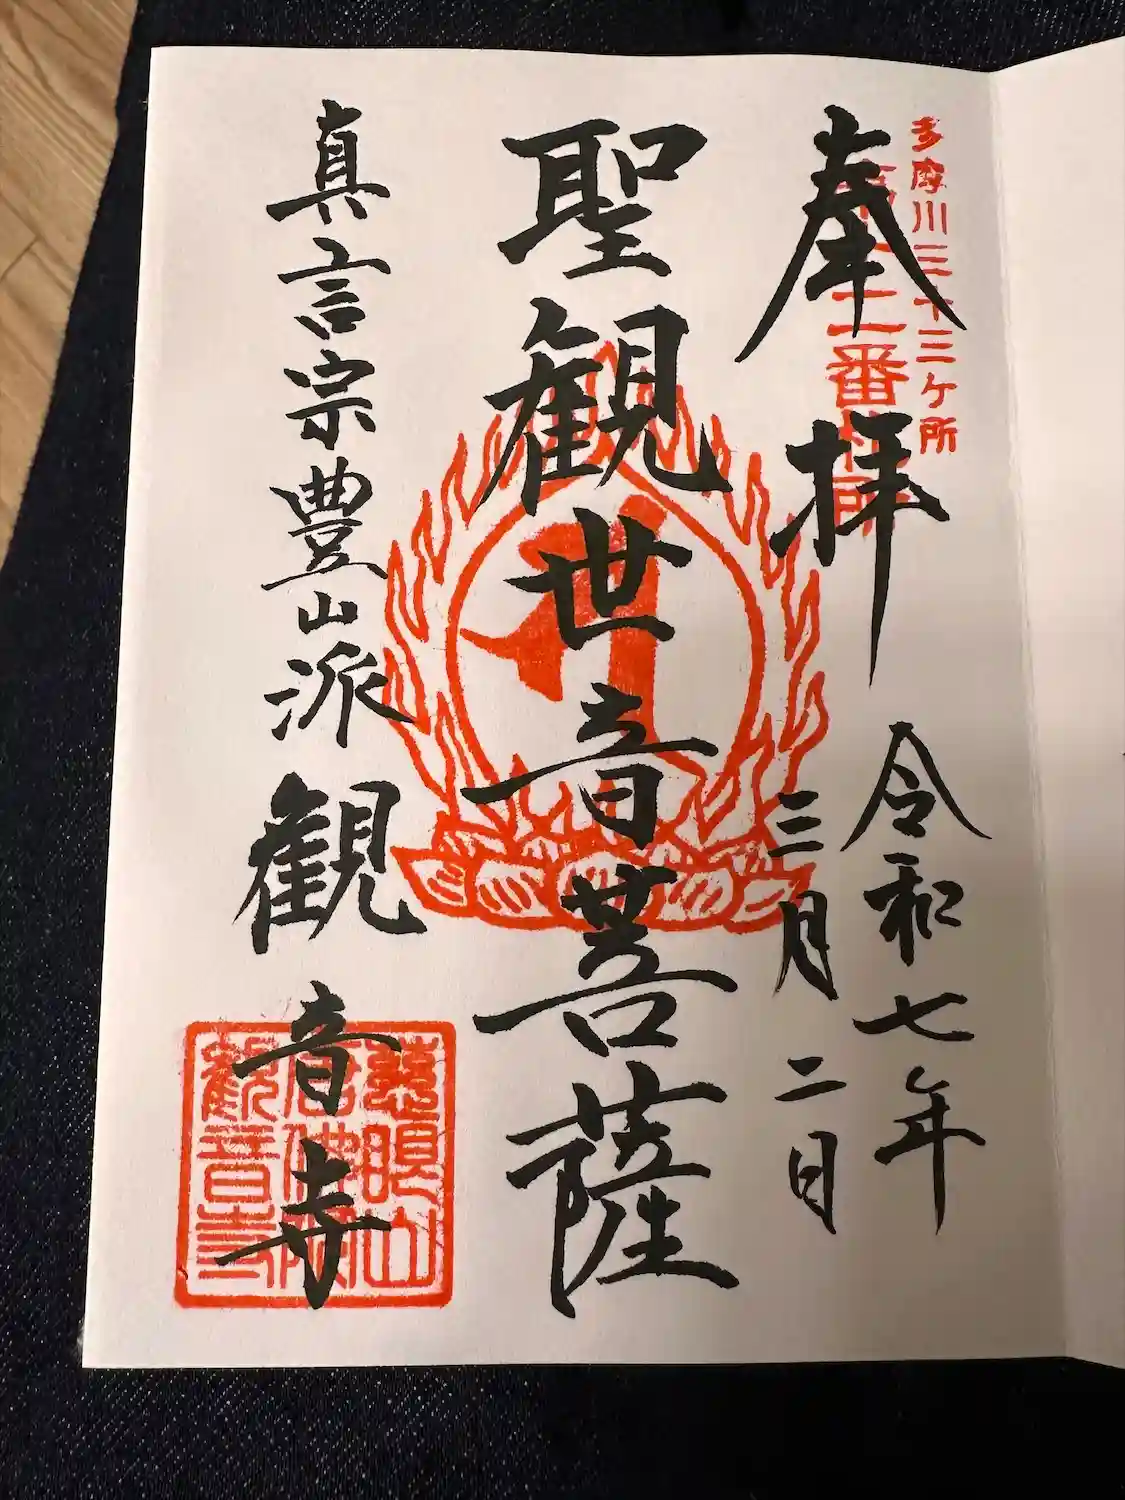 多摩川三十三ヶ所
二番札所
奉拝
令和七年
三月二日
聖観世音菩薩
真言宗豊山派観音寺
慈眼山
唐仏院
観音寺